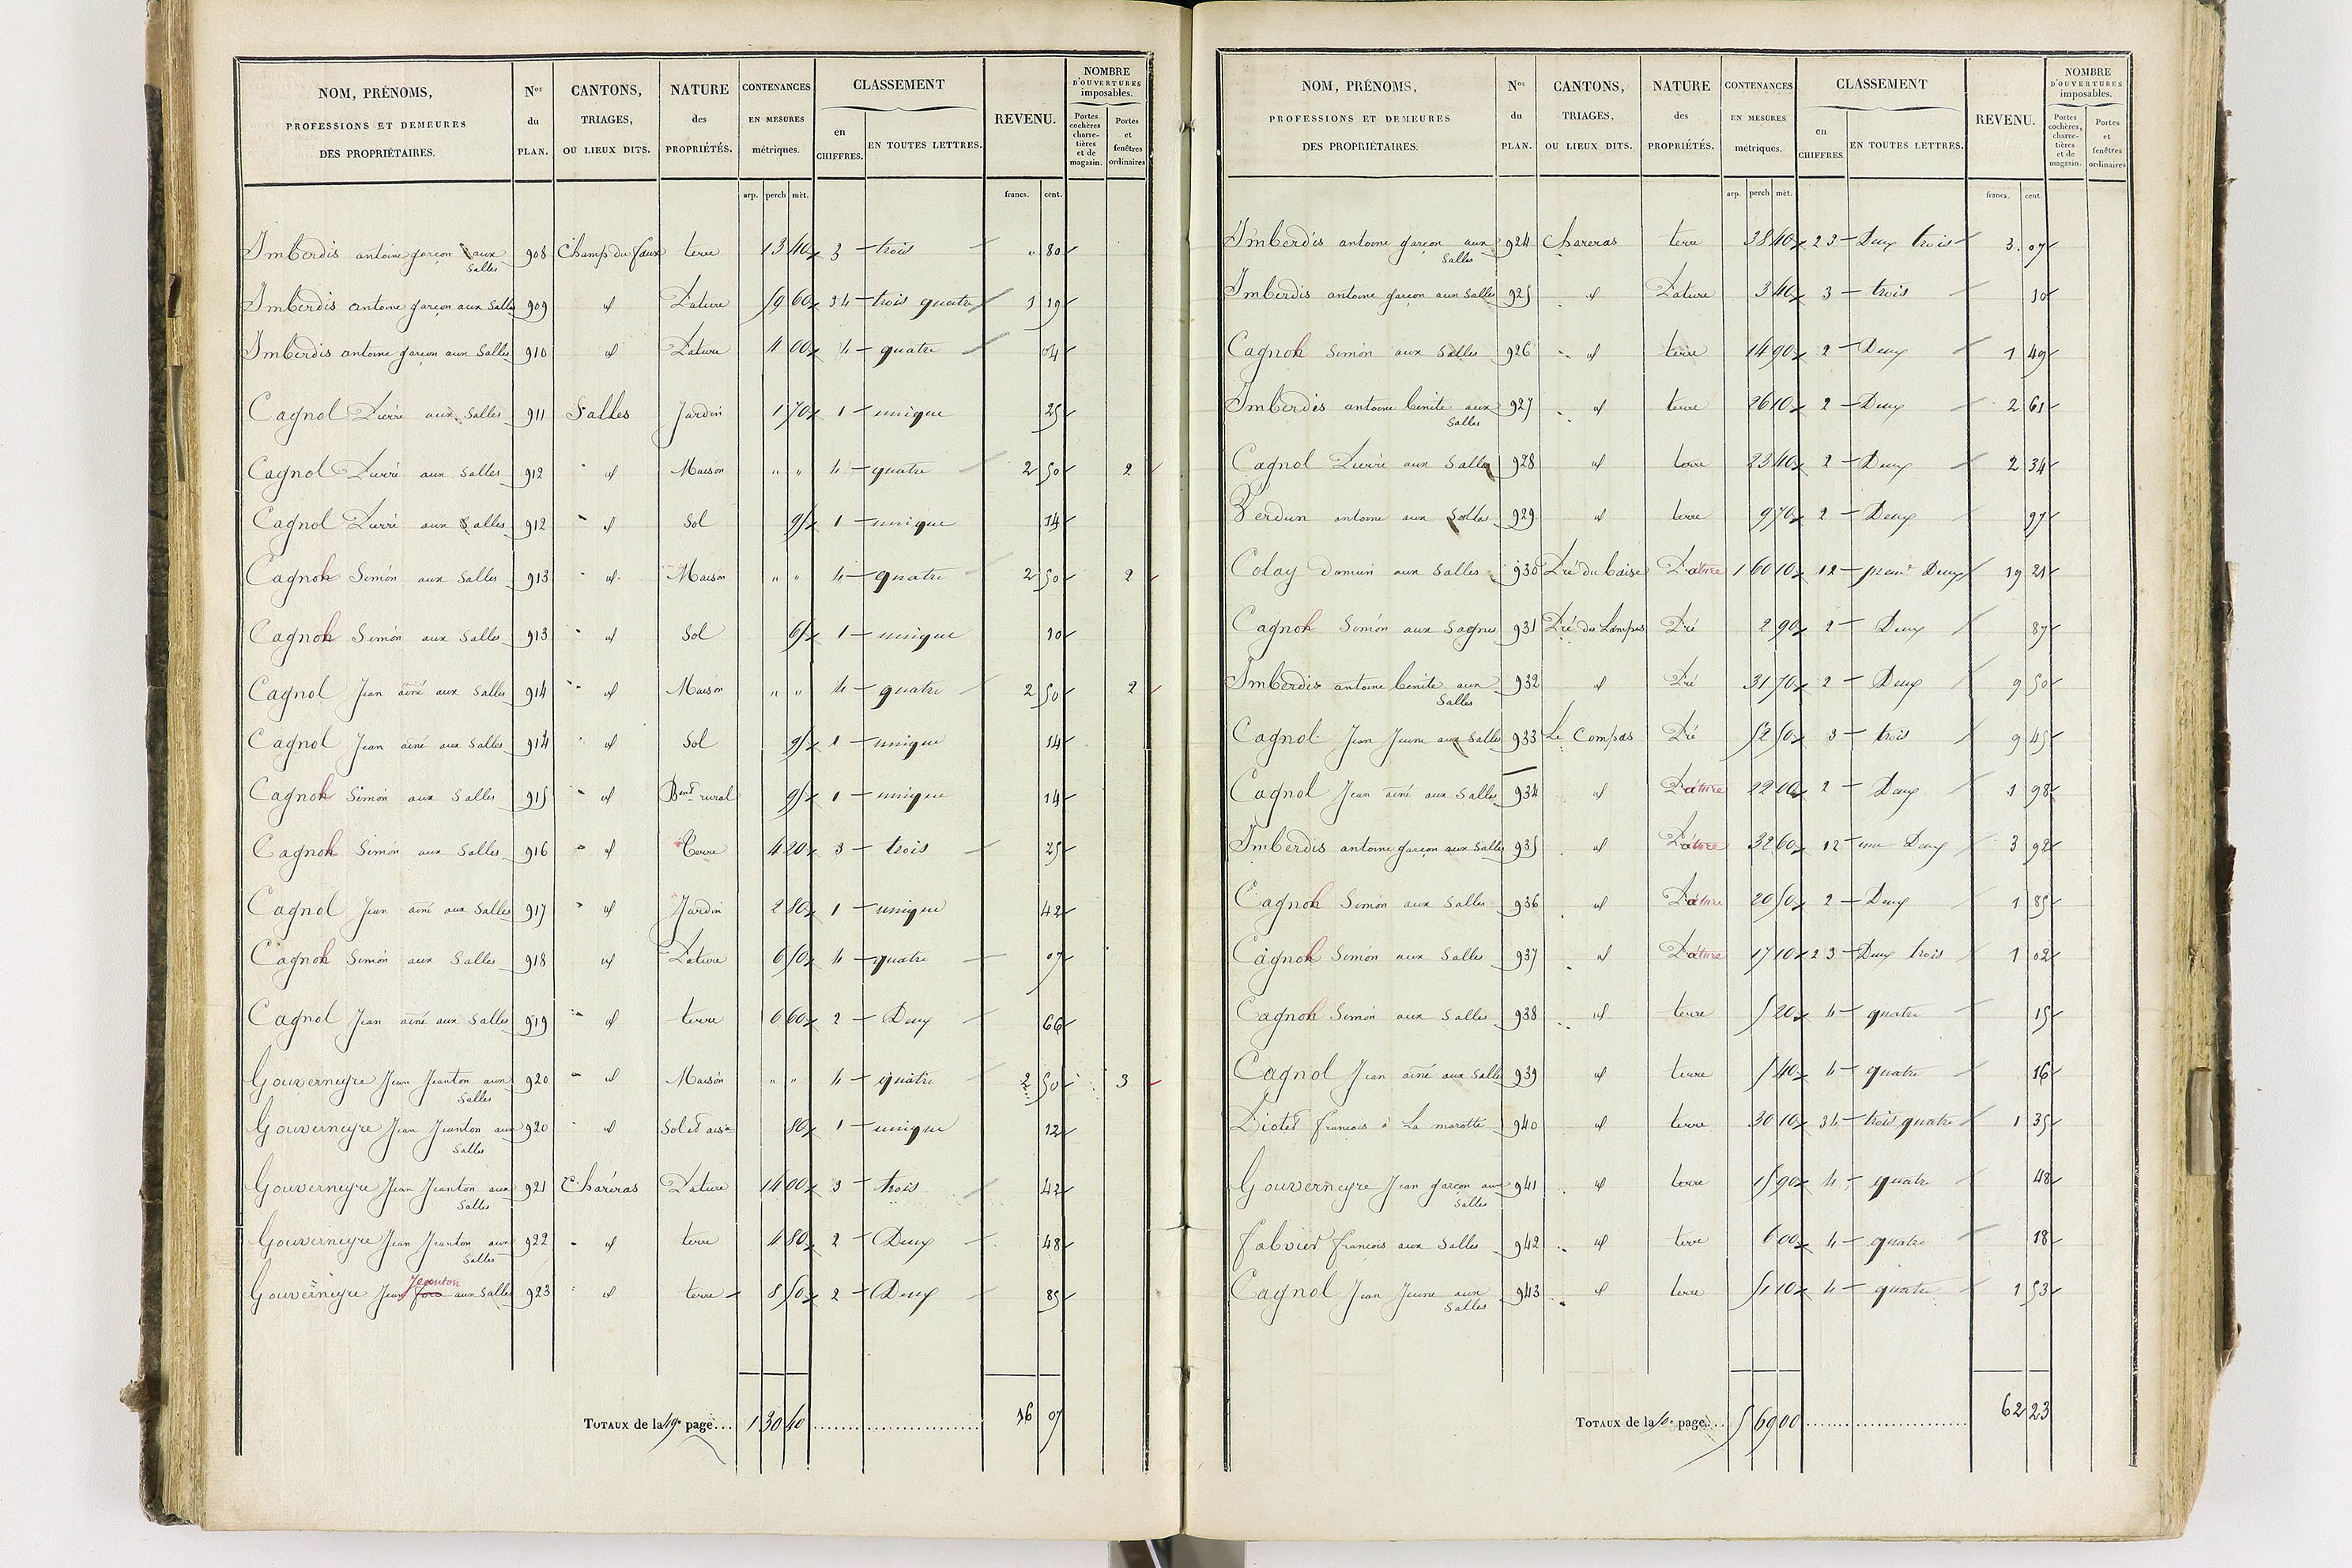 NOM, PRÉNOMS, PROFESSIONS ET DEMEURES DES PROPRIÉTAIRES. Nos du PLAN. CANTONS, TRIAGES, OU LIEUX DITS. NATURE des PROPRIÉTÉS. CONTENANCES EN MESURES métriques. CLASSEMENT en CHIFFRES. EN TOUTES LETTRES. REVENU. NOMBRE D'OUVERTURES imposables. Portes cochères, charretières et de magasin. Portes et fenêtres ordinaires
arp. perch mèt. francs. cent.
Imberdis antoine garçon aux Salles 908 Champ du faux terre 13 40 3 trois " 80
Imberdis antoine garçon aux Salles 909 id Pature 59 60 34 trois quatre 1 19
Imberdis antoine garçon aux Salles 910 id Pature 4 00 4 quatre 04
Cagnol Pierre aux Salles 911 Salles Jardin 1 70 1 unique 25
Cagnol Pierre aux Salles 912 id Maison " " 4 quatre 2 50 2
Cagnol Pierre aux Salles 912 id Sol 95 1 unique 14
Cagnoh Simon aux Salles 913 id Maison " " 4 quatre 2 50 2
Cagnoh Simon aux Salles 913 id Sol 65 1 unique 10
Cagnol Jean ainé aux Salles 914 id Maison " " 4 quatre 2 50 2
Cagnol Jean ainé aux Salles 914 id Sol 95 1 unique 14
Cagnoh Simon aux Salles 915 id Bment rural 95 1 unique 14
Cagnoh Simon aux Salles 916 id Terre 4 20 3 trois 25
Cagnol Jean ainé aux Salles 917 id Jardin 2 80 1 unique 42
Cagnoh Simon aux Salles 918 id Pature 6 50 4 quatre 07
Cagnol Jean ainé aux Salles 919 id terre 6 60 2 Deux 66
Gouverneyre Jean Jeanton aux Salles 920 id Maison " " 4 quatre 2 50 3
Gouverneyre Jean Jeanton aux Salles 920 id Sol et ais 80 1 unique 12
Gouverneyre Jean Jeanton aux Salles 921 Charéras Pature 14 00 3 trois 42
Gouverneyre Jean Jeanton aux Salles 922 id terre 4 80 2 Deux 48
Gouverneyre Jean Jeanton aux Salles 923 id terre 8 50 2 Deux 85
TOTAUX de la 49e page.... 1 30 40 16 07
NOM, PRÉNOMS, PROFESSIONS ET DEMEURES DES PROPRIÉTAIRES. Nos du PLAN. CANTONS, TRIAGES, OU LIEUX DITS. NATURE des PROPRIÉTÉS. CONTENANCES EN MESURES métriques. CLASSEMENT en CHIFFRES. EN TOUTES LETTRES. REVENU. NOMBRE D'OUVERTURES imposables. Portes cochères, charretières et de magasin. Portes et fenêtres ordinaires
arp. perch mèt. francs. cent.
Imberdis antoine garçon aux Salles 924 Chareras terre 38 40 23 Deux trois 3. 07
Imberdis antoine garçon aux Salles 925 id Pature 3 40 3 trois 10
Cagnoh Simon aux Salles 926 id terre 14 90 2 Deux 1 49
Imberdis antoine benite aux Salles 927 id terre 26 10 2 Deux 2 61
Cagnol Pierre aux Salles 928 id terre 23 40 2 Deux 2 34
Verdun antoine aux Salles 929 id terre 9 70 2 Deux 97
Colay Damien aux Salles 930 Pré du baise Pature 1 60 10 12 prem Deux 19 21
Cagnoh Simon aux Sagnes 931 Pré du Compas Pré 2 90 2 Deux 87
Imberdis antoine benite aux Salles 932 id Pré 31 70 2 Deux 9 50
Cagnol Jean Jeune aux Salles 933 Le Compas Pré 52 50 3 trois 9 45
Cagnol Jean ainé aux Salles 934 id Pature 22 00 2 Deux 1 98
Imberdis antoine garçon aux Salles 935 id Pature 32 60 12 une Deux 3 92
Cagnoh Simon aux Salles 936 id Pature 20 50 2 Deux 1 85
Cagnoh Simon aux Salles 937 id Pature 17 10 23 Deux trois 1 02
Cagnoh Simon aux Salles 938 id terre 5 20 4 quatre 15
Cagnol Jean ainé aux Salles 939 id terre 5 40 4 quatre 16
Diotet francois à La marotte 940 id terre 30 10 34 trois quatre 1 35
Gouverneyre Jean garçon aux Salles 941 id terre 15 90 4 quatre 48
fabvier francois aux Salles 942 id terre 6 00 4 quatre 18
Cagnol Jean Jeune aux Salles 943 id terre 51 10 4 quatre 1 53
TOTAUX de la 50e page.... 5 69 00 62 23